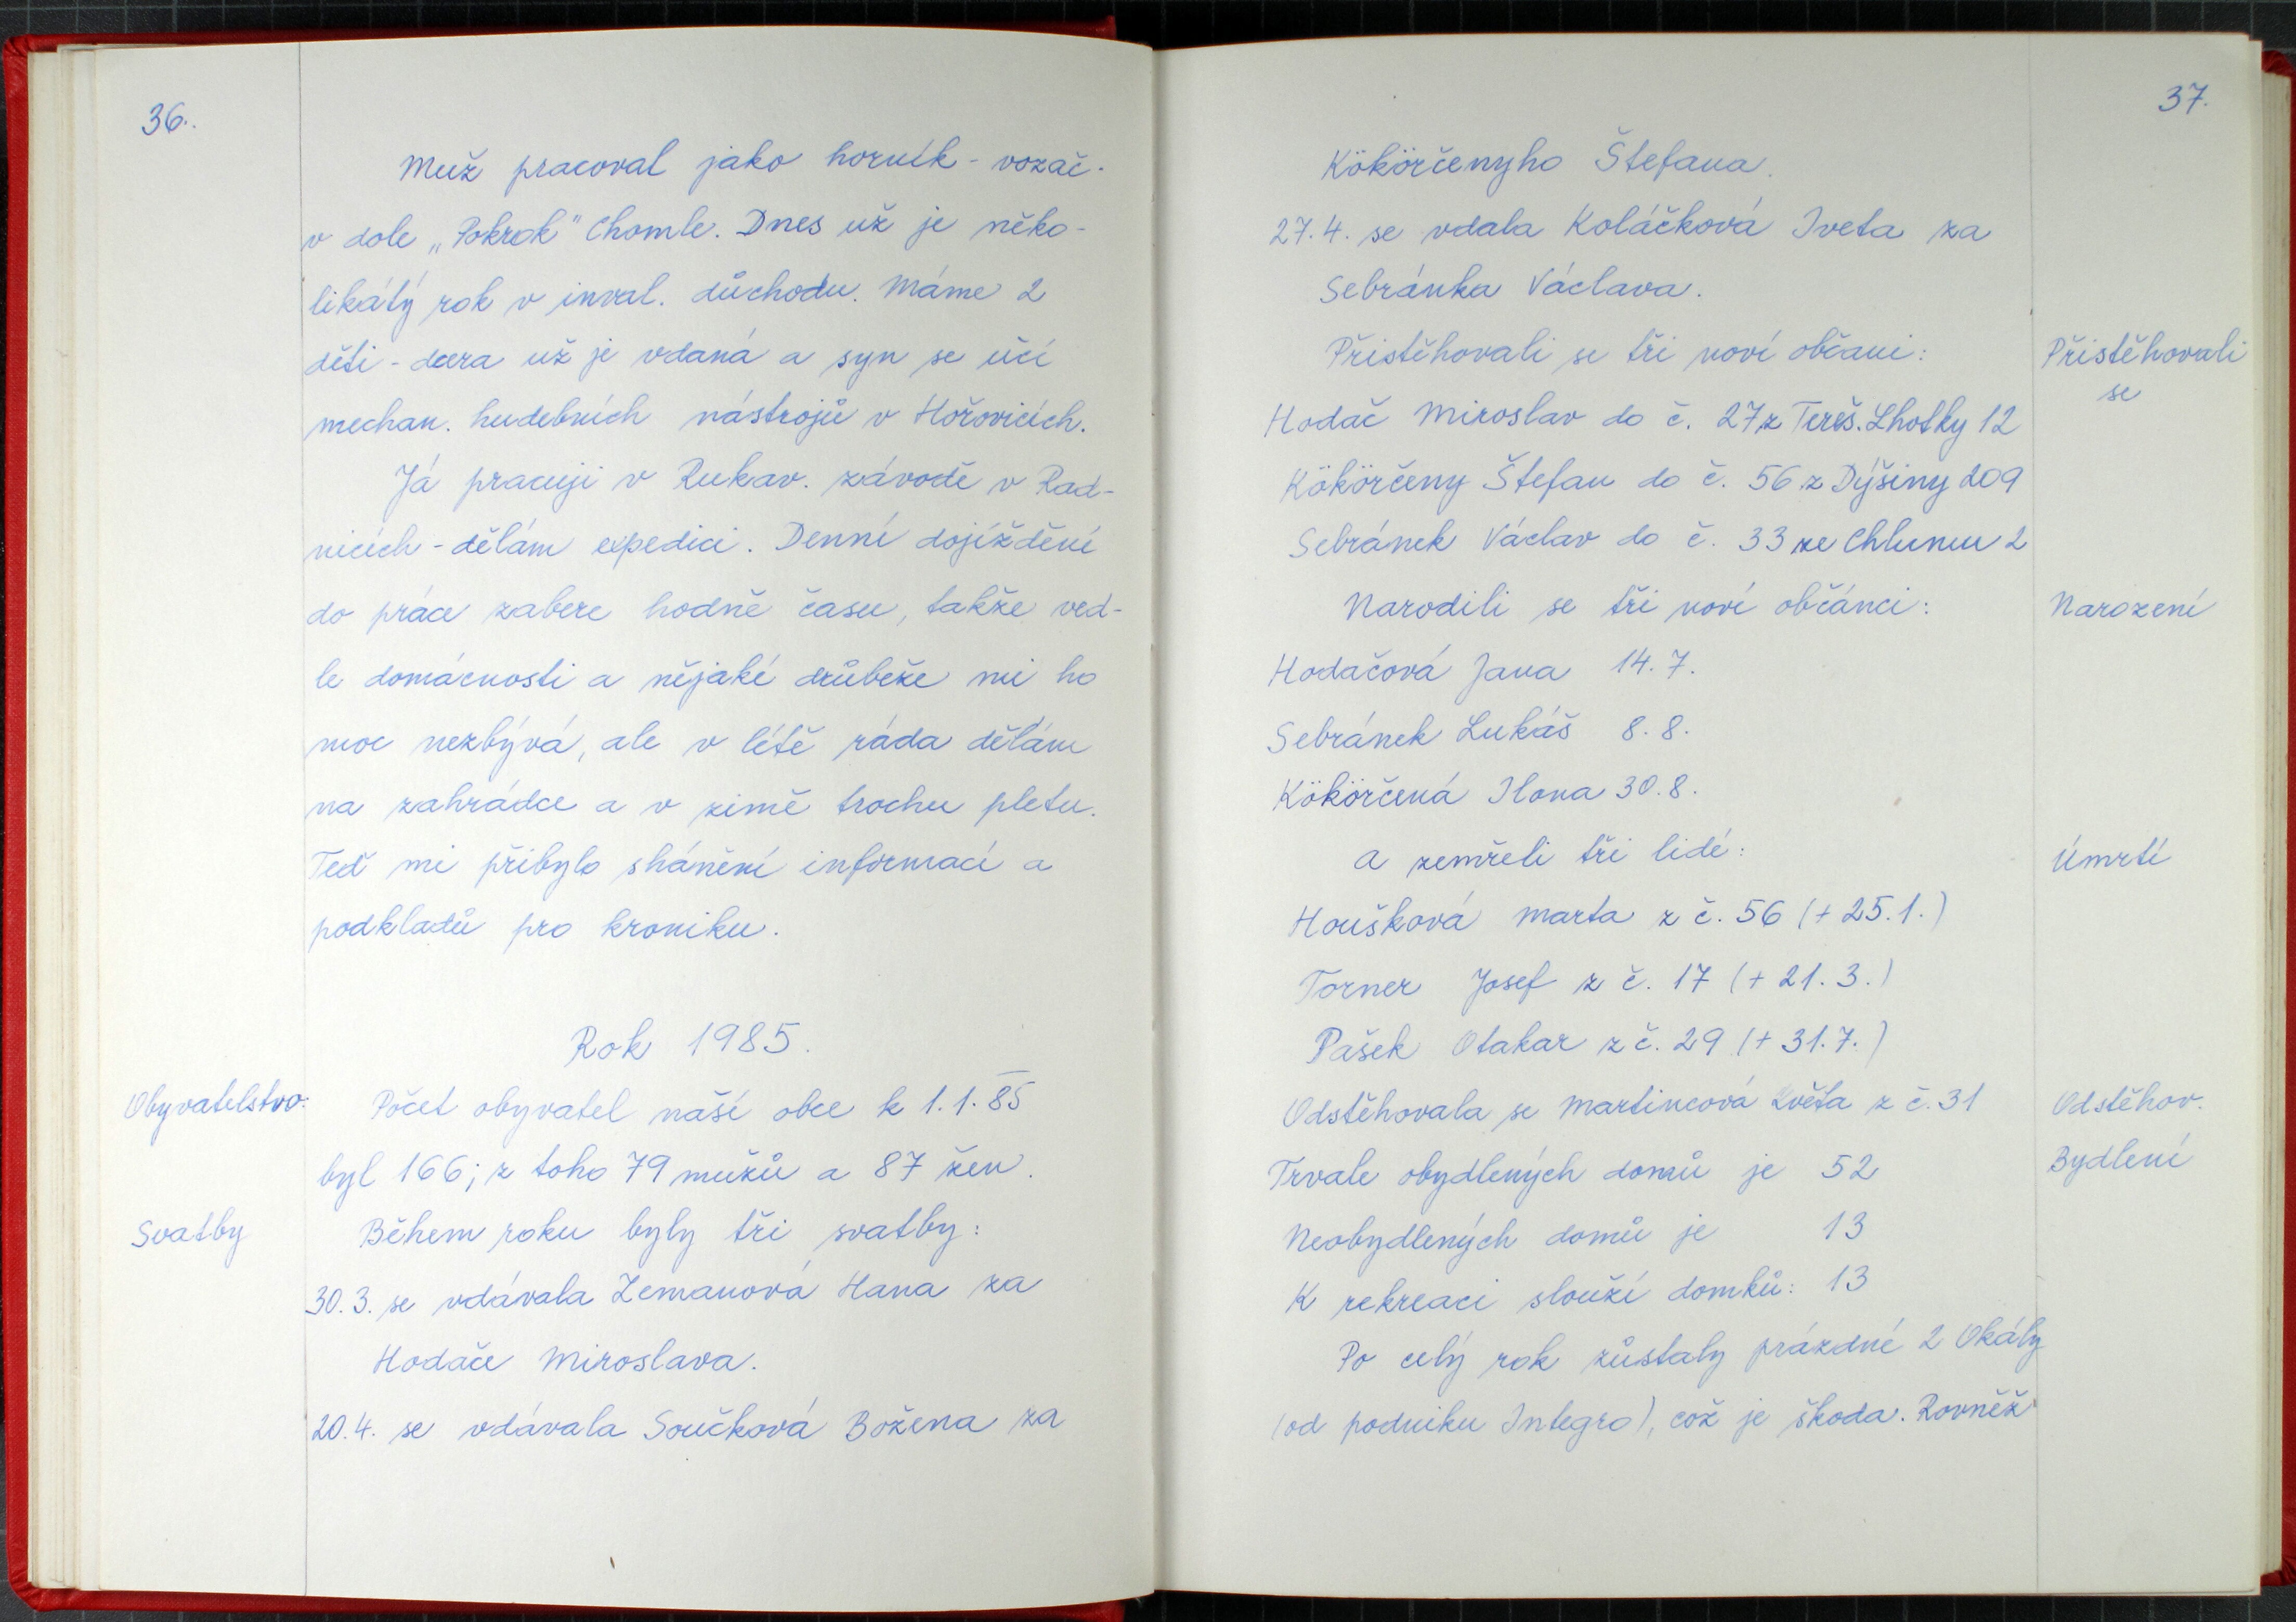 36.
Muž pracoval jako horník - vozač
v dole „Pokrok" Chomle. Dnes už je něko-
likátý rok v inval. důchodu. Máme 2
děti - dcera už je vdaná a syn se učí
mechan. hudebních nástrojů v Hořovicích.
Já pracuji v Rukav. závodě v Rad-
nicích - dělám expedici. Denní dojíždění
do práce zabere hodně času, takže ved-
le domácnosti a nějaké drůbeže mi ho
moc nezbývá, ale v létě ráda dělám
na zahrádce a v zimě trochu pletu.
Teď mi přibylo shánění informací a
podkladů pro kroniku.
Rok 1985.
Obyvatelstvo: Počet obyvatel naší obce k 1.1.85
byl 166; z toho 79 mužů a 87 žen.
Svatby Během roku byly tři svatby:
30.3. se vdávala Zemanová Hana za
Hodače Miroslava.
20.4. se vdávala Součková Božena za
37.
Kökörčenyho Štefana.
27.4. se vdala Koláčková Iveta za
Sebránka Václava.
Přistěhovali se tři noví občani: Přistěhovali
se
Hodač Miroslav do č. 27 z Tereš. Lhotky 12
Kökörčeny Štefan do č. 56 z Dýšiny 209
Sebránek Václav do č. 33 ze Chlumu 2
Narodili se tři noví občánci: Narození
Hodačová Jana 14.7.
Sebránek Lukáš 8.8.
Kökörčená Ilona 30.8.
a zemřeli tři lidé: Úmrtí
Houšková Marta z č. 56 (+ 25.1.)
Torner Josef z č. 17 (+ 21.3.)
Pašek Otakar z č. 29 (+ 31.7.)
Odstěhovala se Martincová Květa z č. 31 Odstěhov.
Trvale obydlených domů je 52 Bydlení
Neobydlených domů je 13
K rekreaci slouží domků: 13
Po celý rok zůstaly prázdné 2 Okály
(od podniku Integro), což je škoda. Rovněž